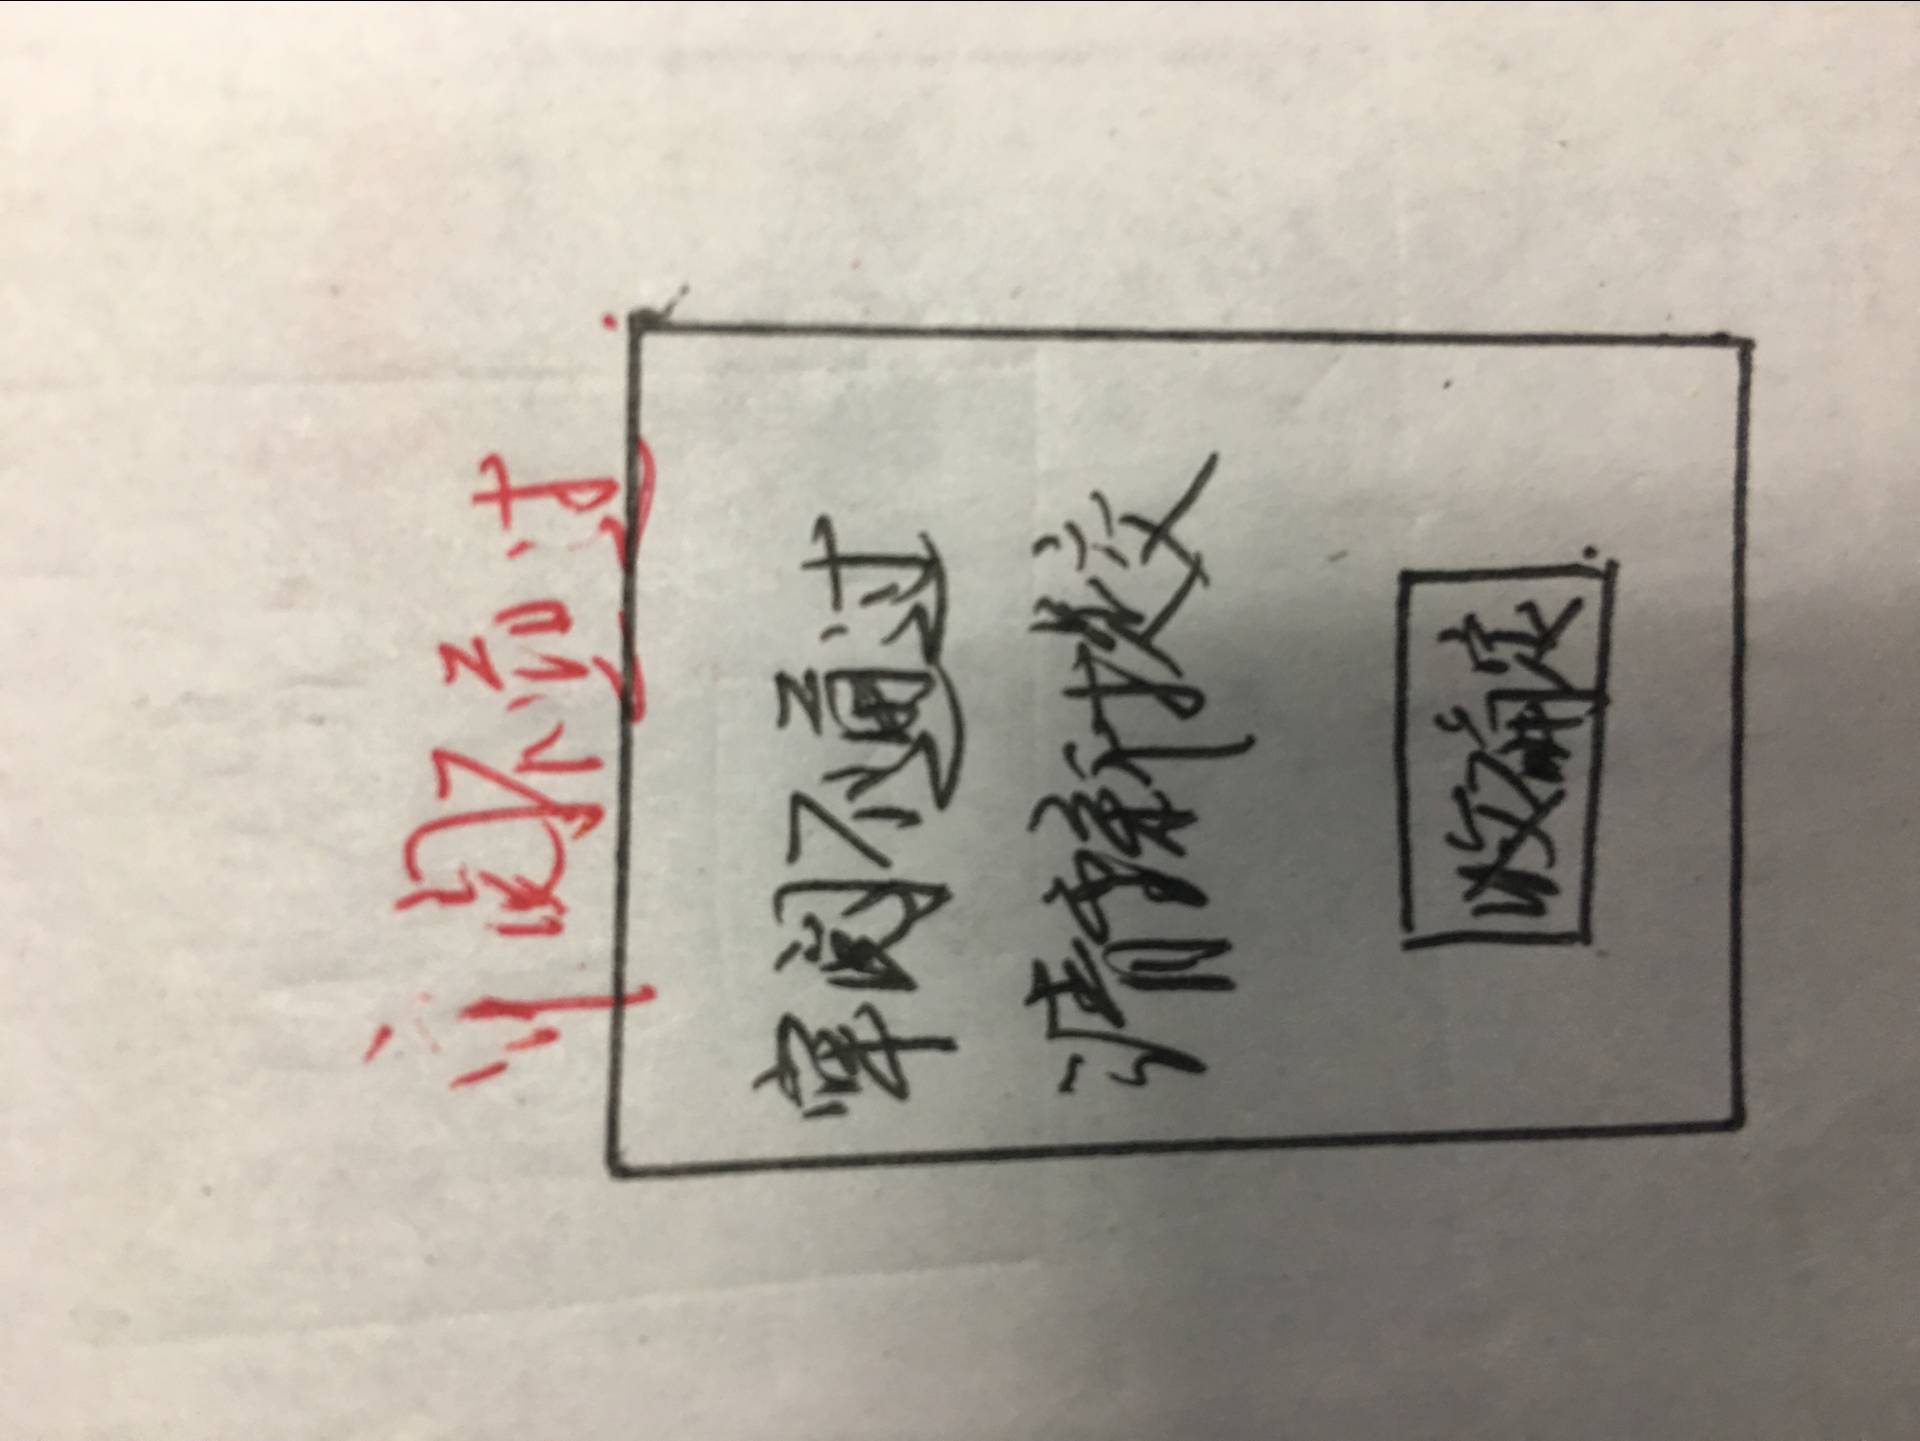 审阅不通过
审阅不通过
请重新提交
收确定